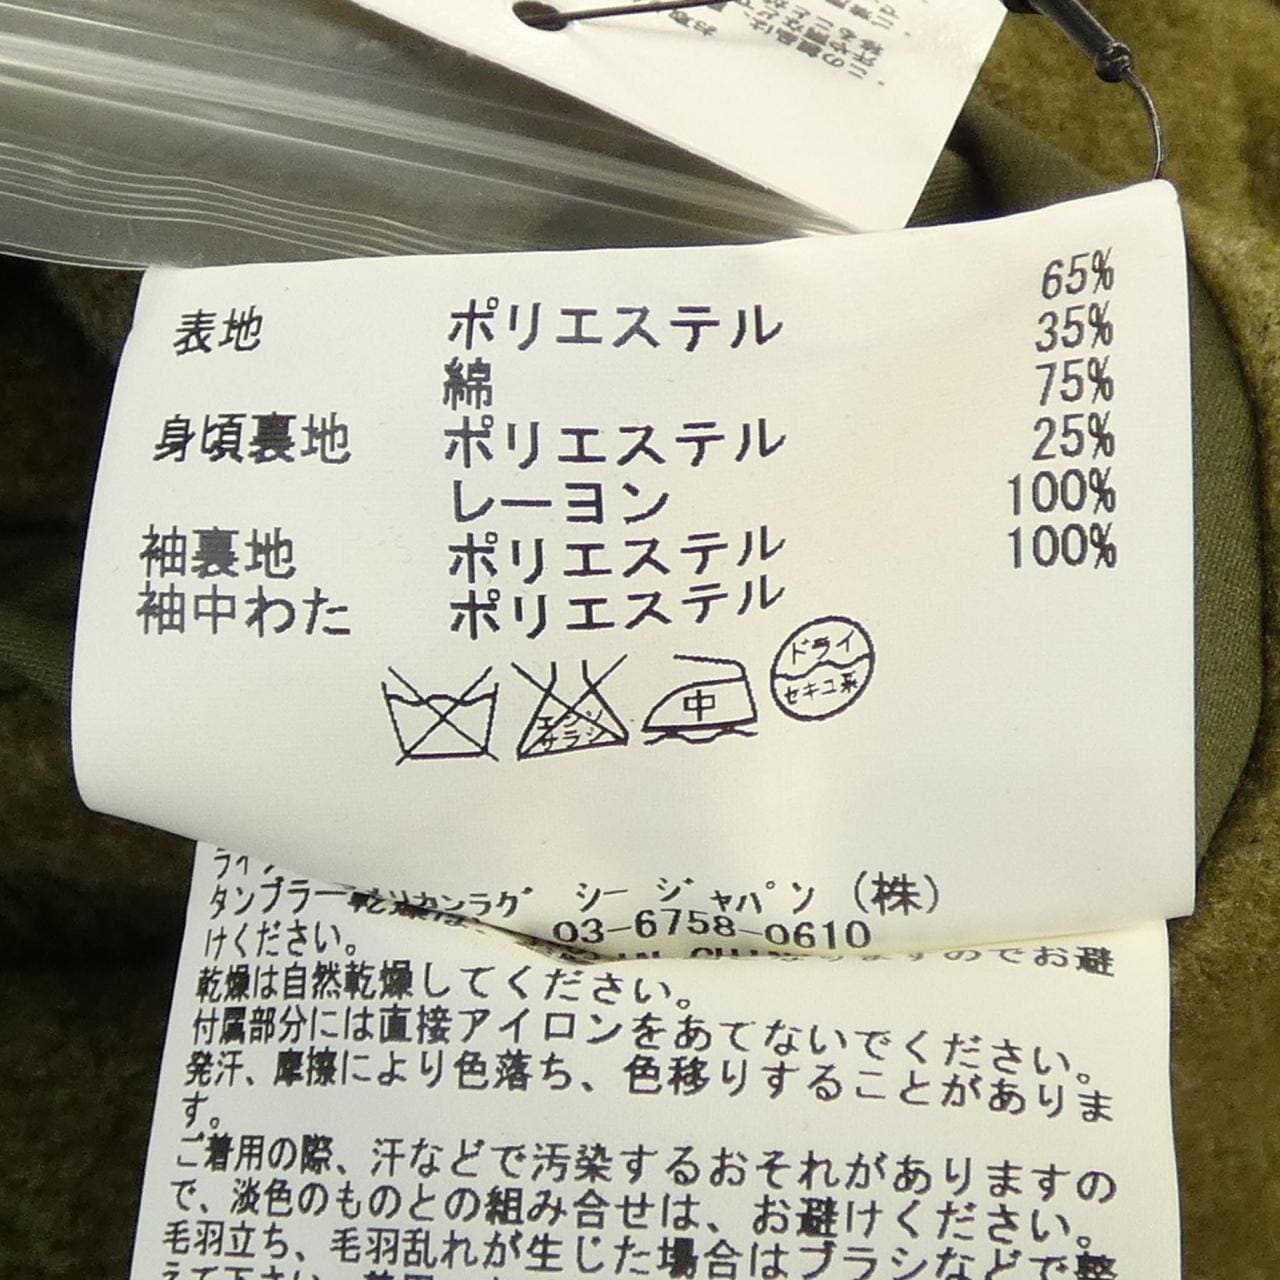 表地 ポリエステル 65%
綿 35%
身頃裏地 ポリエステル 75%
レーヨン 25%
袖裏地 ポリエステル 100%
袖中わた ポリエステル 100%
エンソ
サラシ
中
ドライ
セキユ系
タンブラー乾燥は
ラグ シー ジャパン (株)
03-6758-0610
けください。
のでお避
乾燥は自然乾燥してください。
付属部分には直接アイロンをあてないでください。
発汗、摩擦により色落ち、色移りすることがありま
す。
ご着用の際、汗などで汚染するおそれがありますの
で、淡色のものとの組み合せは、お避けください。
毛羽立ち、毛羽乱れが生じた場合はブラシなどで整
えて下さい。